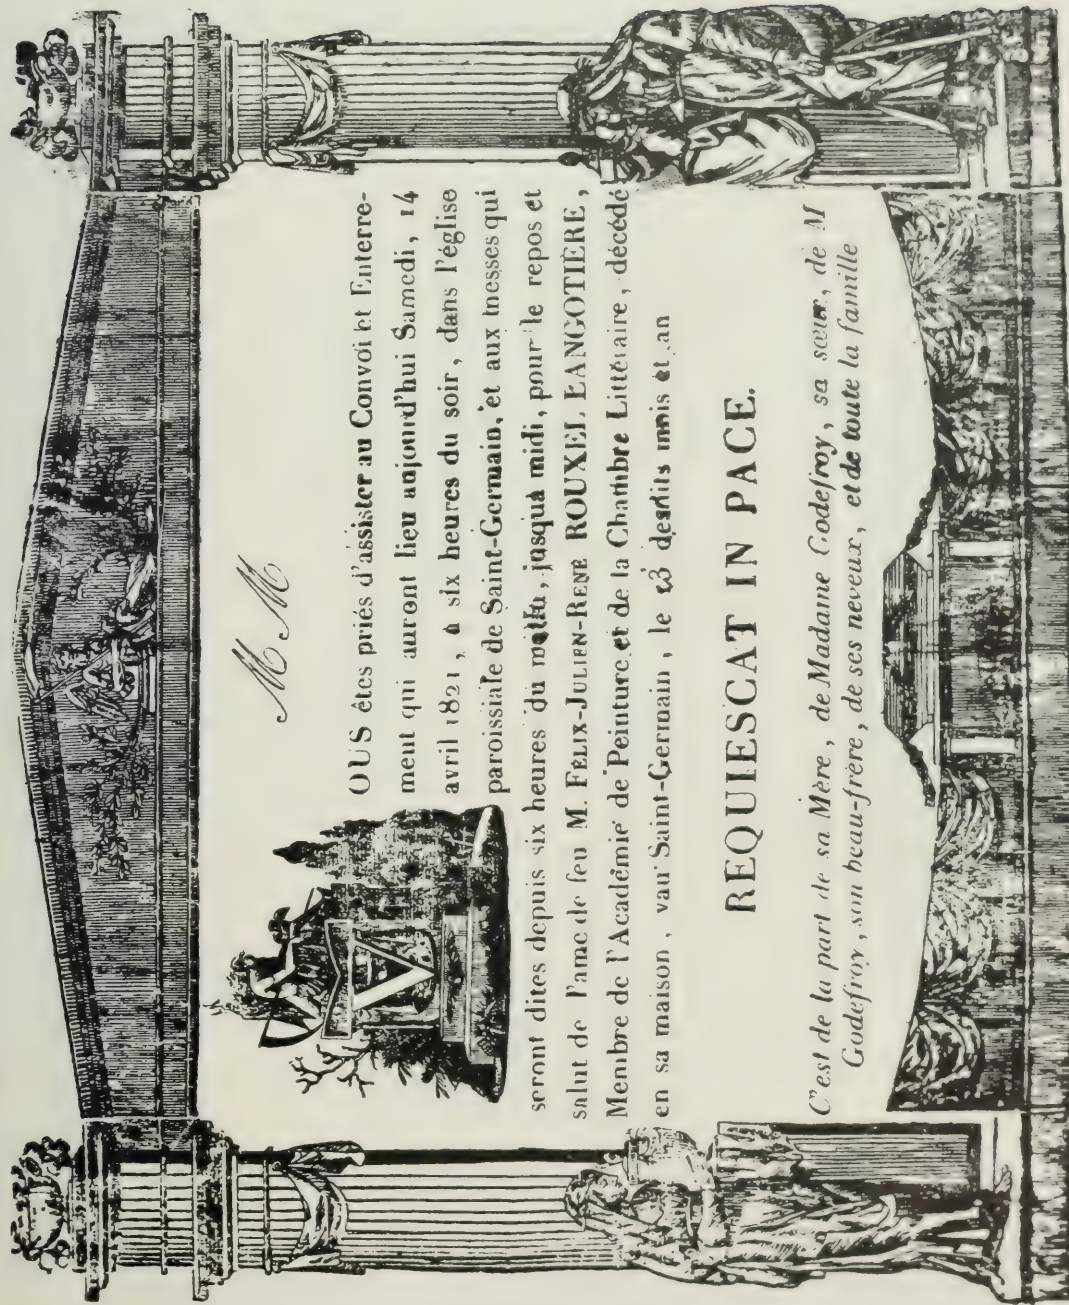 M M
VOUS êtes priés d'assister au Convoi et Enterre-
ment qui auront lieu aujourd'hui Samedi, 14
avril 1821, à six heures du soir, dans l'église
paroissiale de Saint-Germain, et aux messes qui
seront dites depuis six heures du matin, jusqu'à midi, pour le repos et
salut de l'ame de feu M. FÉLIX-JULIEN-RENÉ ROUXEL LANGOTIÈRE,
Membre de l'Académie de Peinture et de la Chambre Littéraire, décédé
en sa maison, vau Saint-Germain, le 13 desdits mois et an
REQUIESCAT IN PACE.
C'est de la part de sa Mère, de Madame Godefroy, sa sœur, de M
Godefroy, son beau-frère, de ses neveux, et de toute la famille